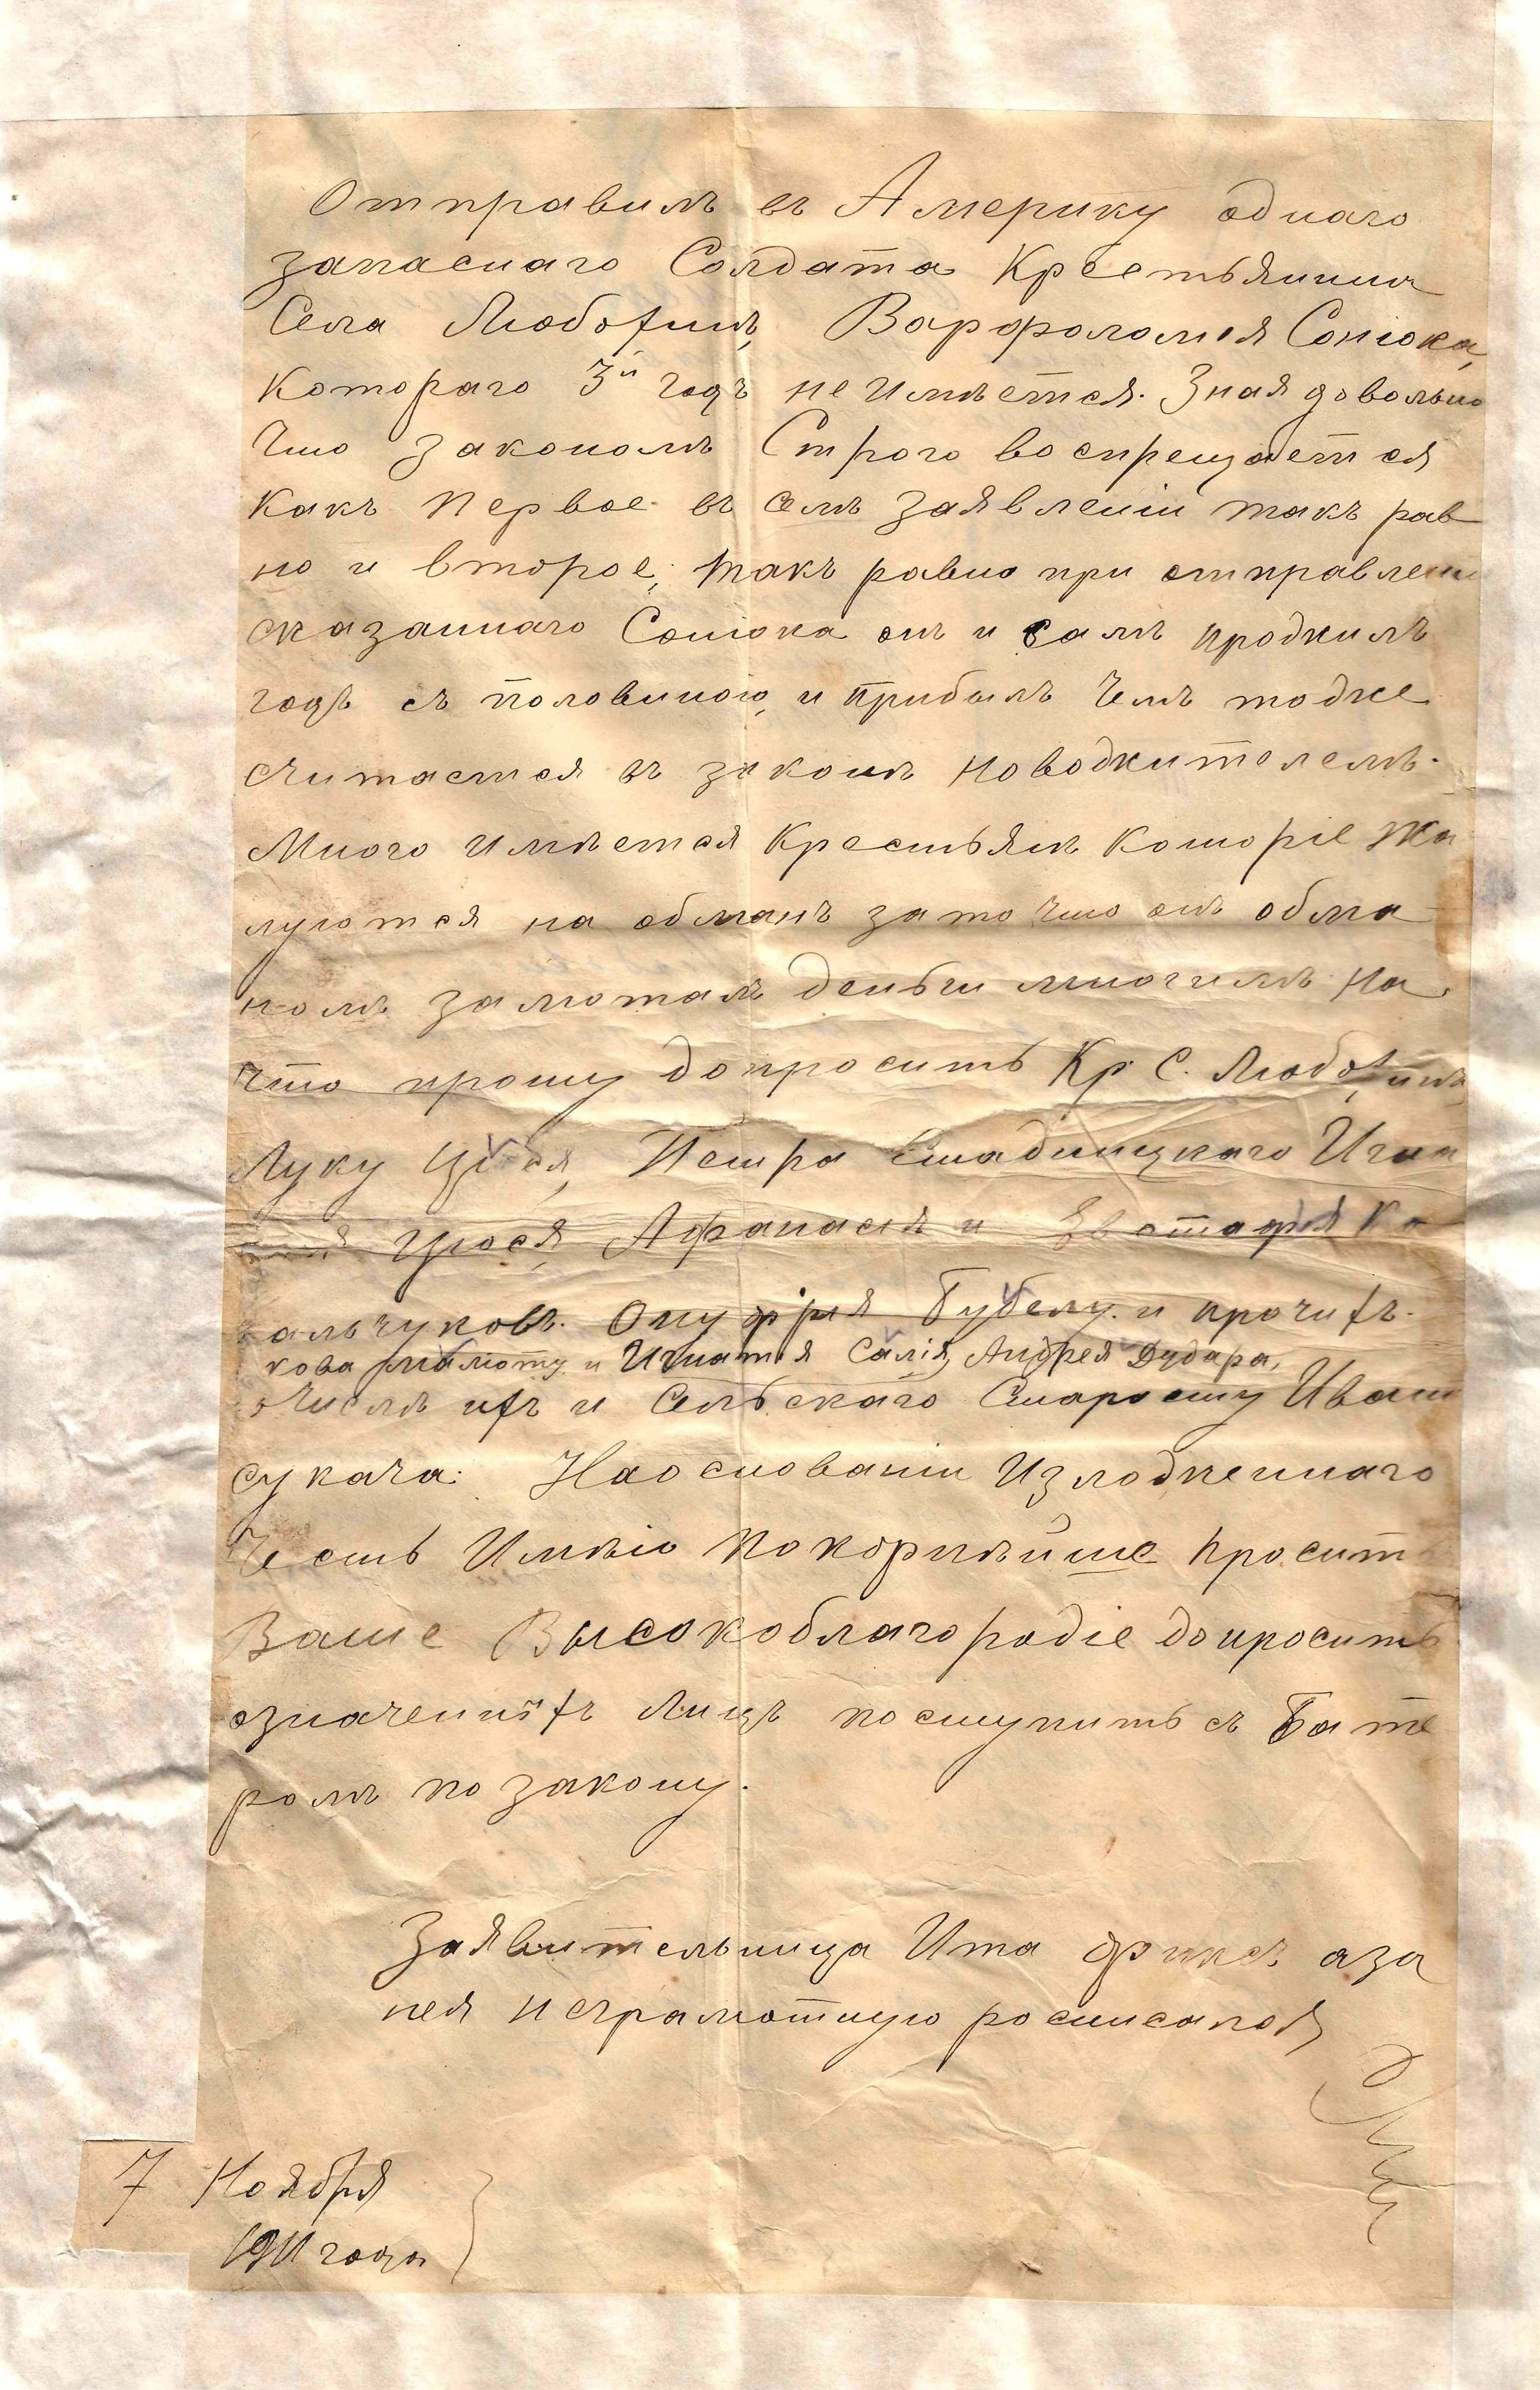 Отправилъ въ Америку однаго
запаснаго Солдата Крестьянина
Села Любохинъ, Варфоломея Сонюка,
Котораго 3й годъ не имѣется. Зная довольно
Что закономъ Строго воспрещается
Какъ первое въ семъ заявленіи такъ рав
но и второе, такъ равно при отправлени
сказаннаго Сонюка онъ и самъ прожилъ
годъ съ половиною, и прибылъ Чемъ тоже
считается въ законѣ новожителемъ.
Много имѣется Крестьянъ Которіе жа
луются на обманъ зато что онъ обма
номъ замоталъ деньги многимъ на
что прошу допросить Кр. С. Любохинъ
Луку Цюся, Петра Стадницкаго Игна
Цюся, Афанасія и Евстафія Ко
альчуковъ. Онуфрія Бубелу. и прочихъ.
кова и Игнатія Салія, Андрея Дудара,
Числѣ ихъ и Сельскаго Старосту Иван
сукача. На основаніи Изложеннаго
Честь Имѣю покорнѣйше просить
Ваше Высокоблагородіе допросить
означеныхъ Лицъ поступить съ Бате
ромъ по закону.
Заявительница Ита Фиксъ аза
нея неграмотную росписался
7 Ноября
1911 года